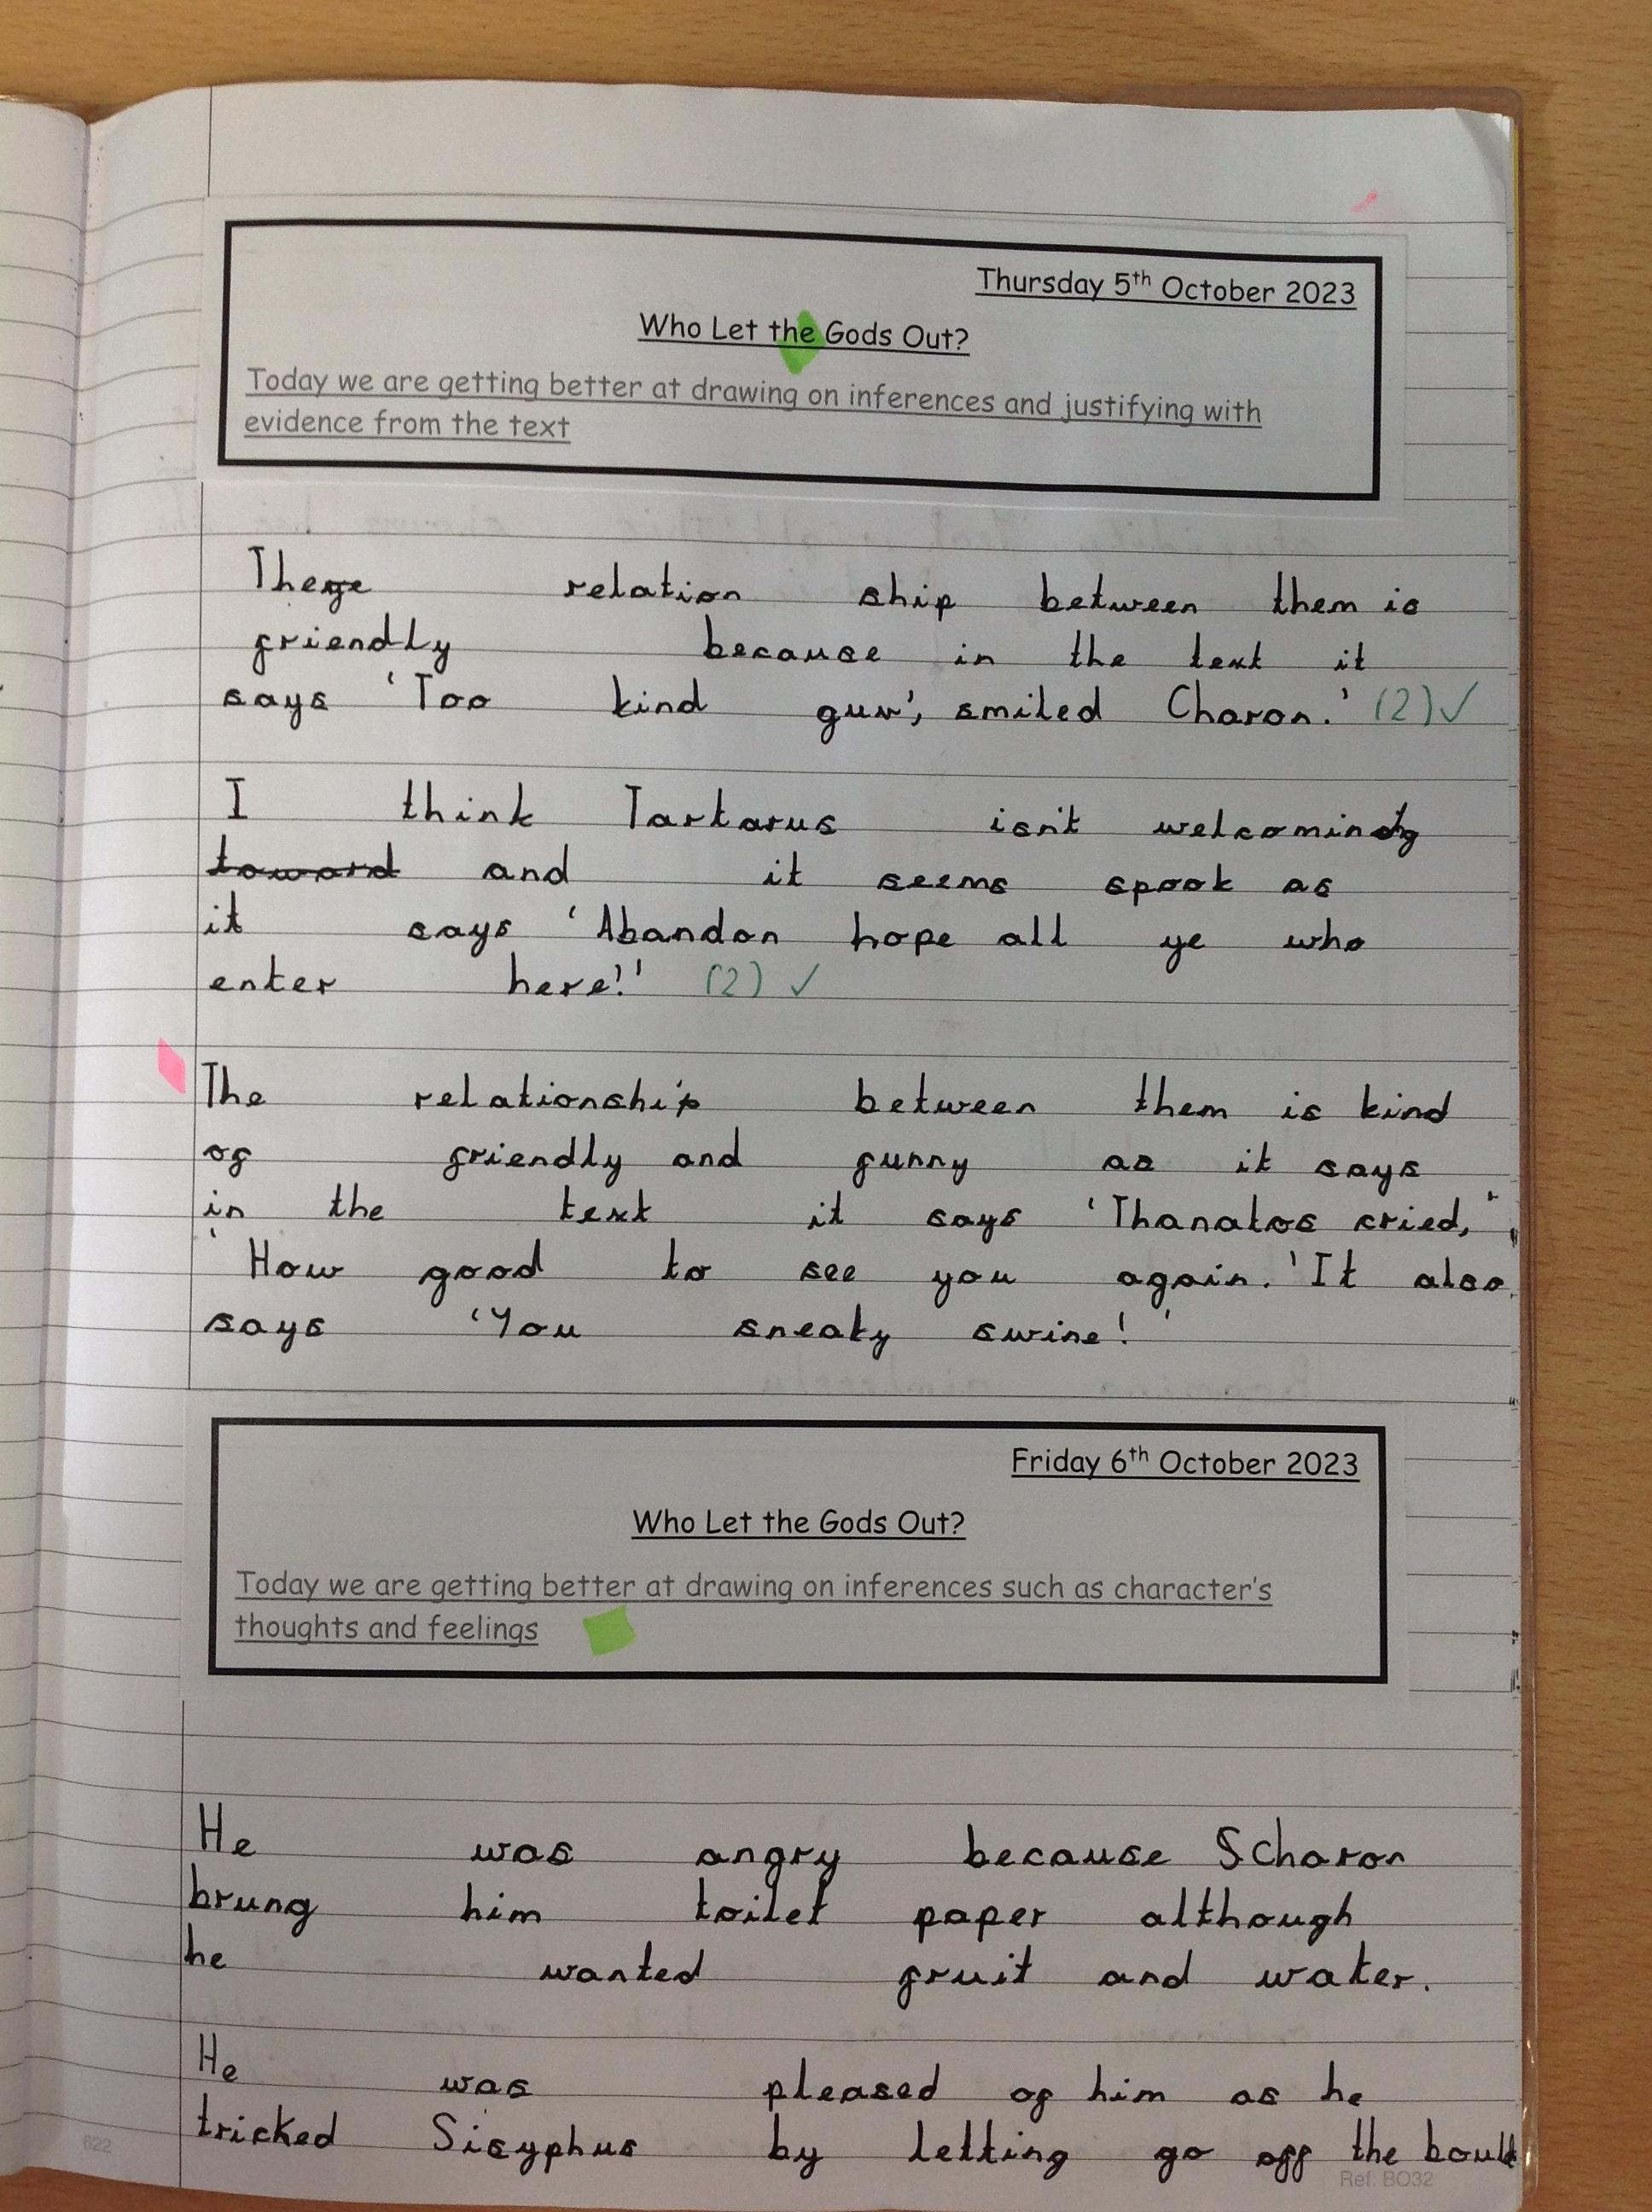 Thursday 5th October 2023
Who Let the Gods Out?
Today we are getting better at drawing on inferences and justifying with
evidence from the text
relation ship between them is
friendly because in the text it
says 'Too kind guv', smiled Charon.' (2) ✓
I think Tartarus isn't welcoming
toward and it seems spook as
it says 'Abandon hope all ye who
enter here!' (2) ✓
The relationship between them is kind
of friendly and funny as it says
in the text it says 'Thanatos cried,"
'How good to see you again.' It also
says 'You sneaky swine!'
Friday 6th October 2023
Who Let the Gods Out?
Today we are getting better at drawing on inferences such as character's
thoughts and feelings
He was angry because Scharon
brung him toilet paper although
he wanted fruit and water.
He was pleased of him as he
tricked Sisyphus by letting go off the
622
Ref. BO32